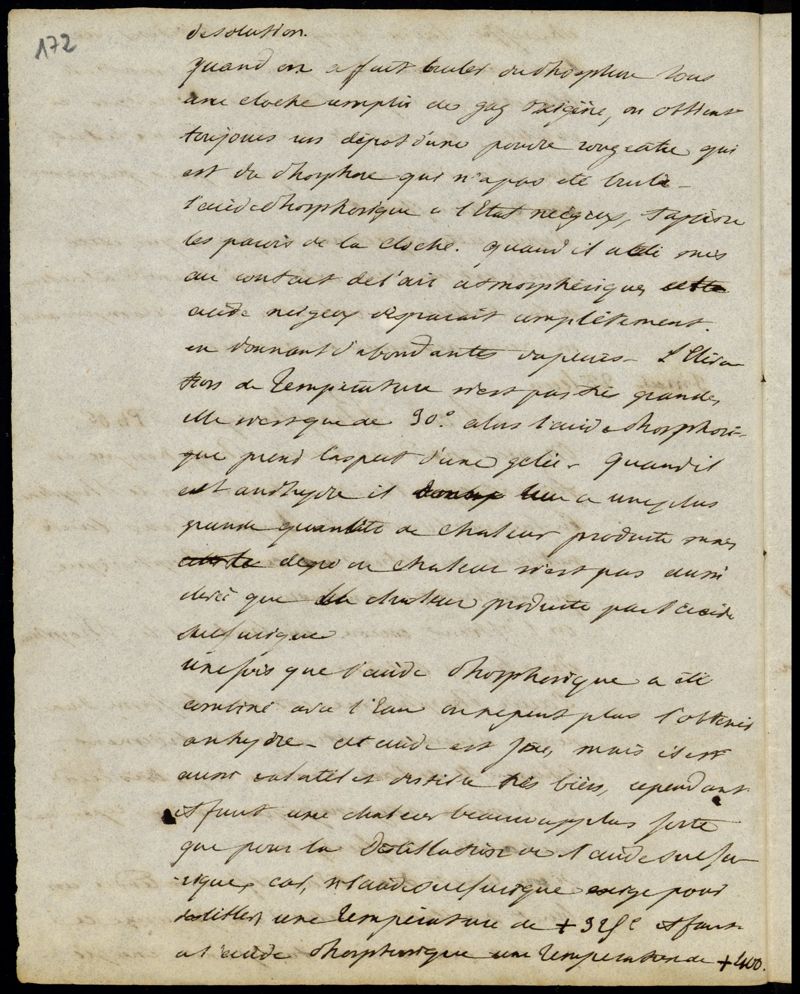 172
desolution.
quand on a fait bruler du Phosphore sous
une cloche remplis de gaz oxigène, on obtient
toujours un dépot d'une poudre rougeatre qui
est du Phosphore qui n'a pas été brulé -
l'acide Phosphorique a l'Etat neigeux, tapisse
les parois de la cloche. quand il a été mis
au contact de l'air atmosphérique, cette
acide neigeux disparait complètement.
en donnant d'abondantes vapeurs - L'Eléva
tion de Température n'est pas très grande,
elle n'est que de 30.° alors l'acide Phosphori-
que prend l'aspect d'une gelée - Quand il
est anhydre il a une plus
grande quantité de chaleur produite mais
degré de chaleur n'est pas aussi
élevé que la chaleur produite par l'acide
sulfurique
une fois que l'acide Phosphorique a été
combiné avec l'Eau on ne peut plus l'obtenir
anhydre - cet acide est fixe, mais il est
aussi volatil et distille très bien, cependant
il faut une chaleur beaucoup plus forte
que pour la Distillation de l'acide sulfu-
rique, car, si l'acide sulfurique exige pour
distiller, une Température de + 325° il faut
a l'acide Phosphorique une Température de + 400.